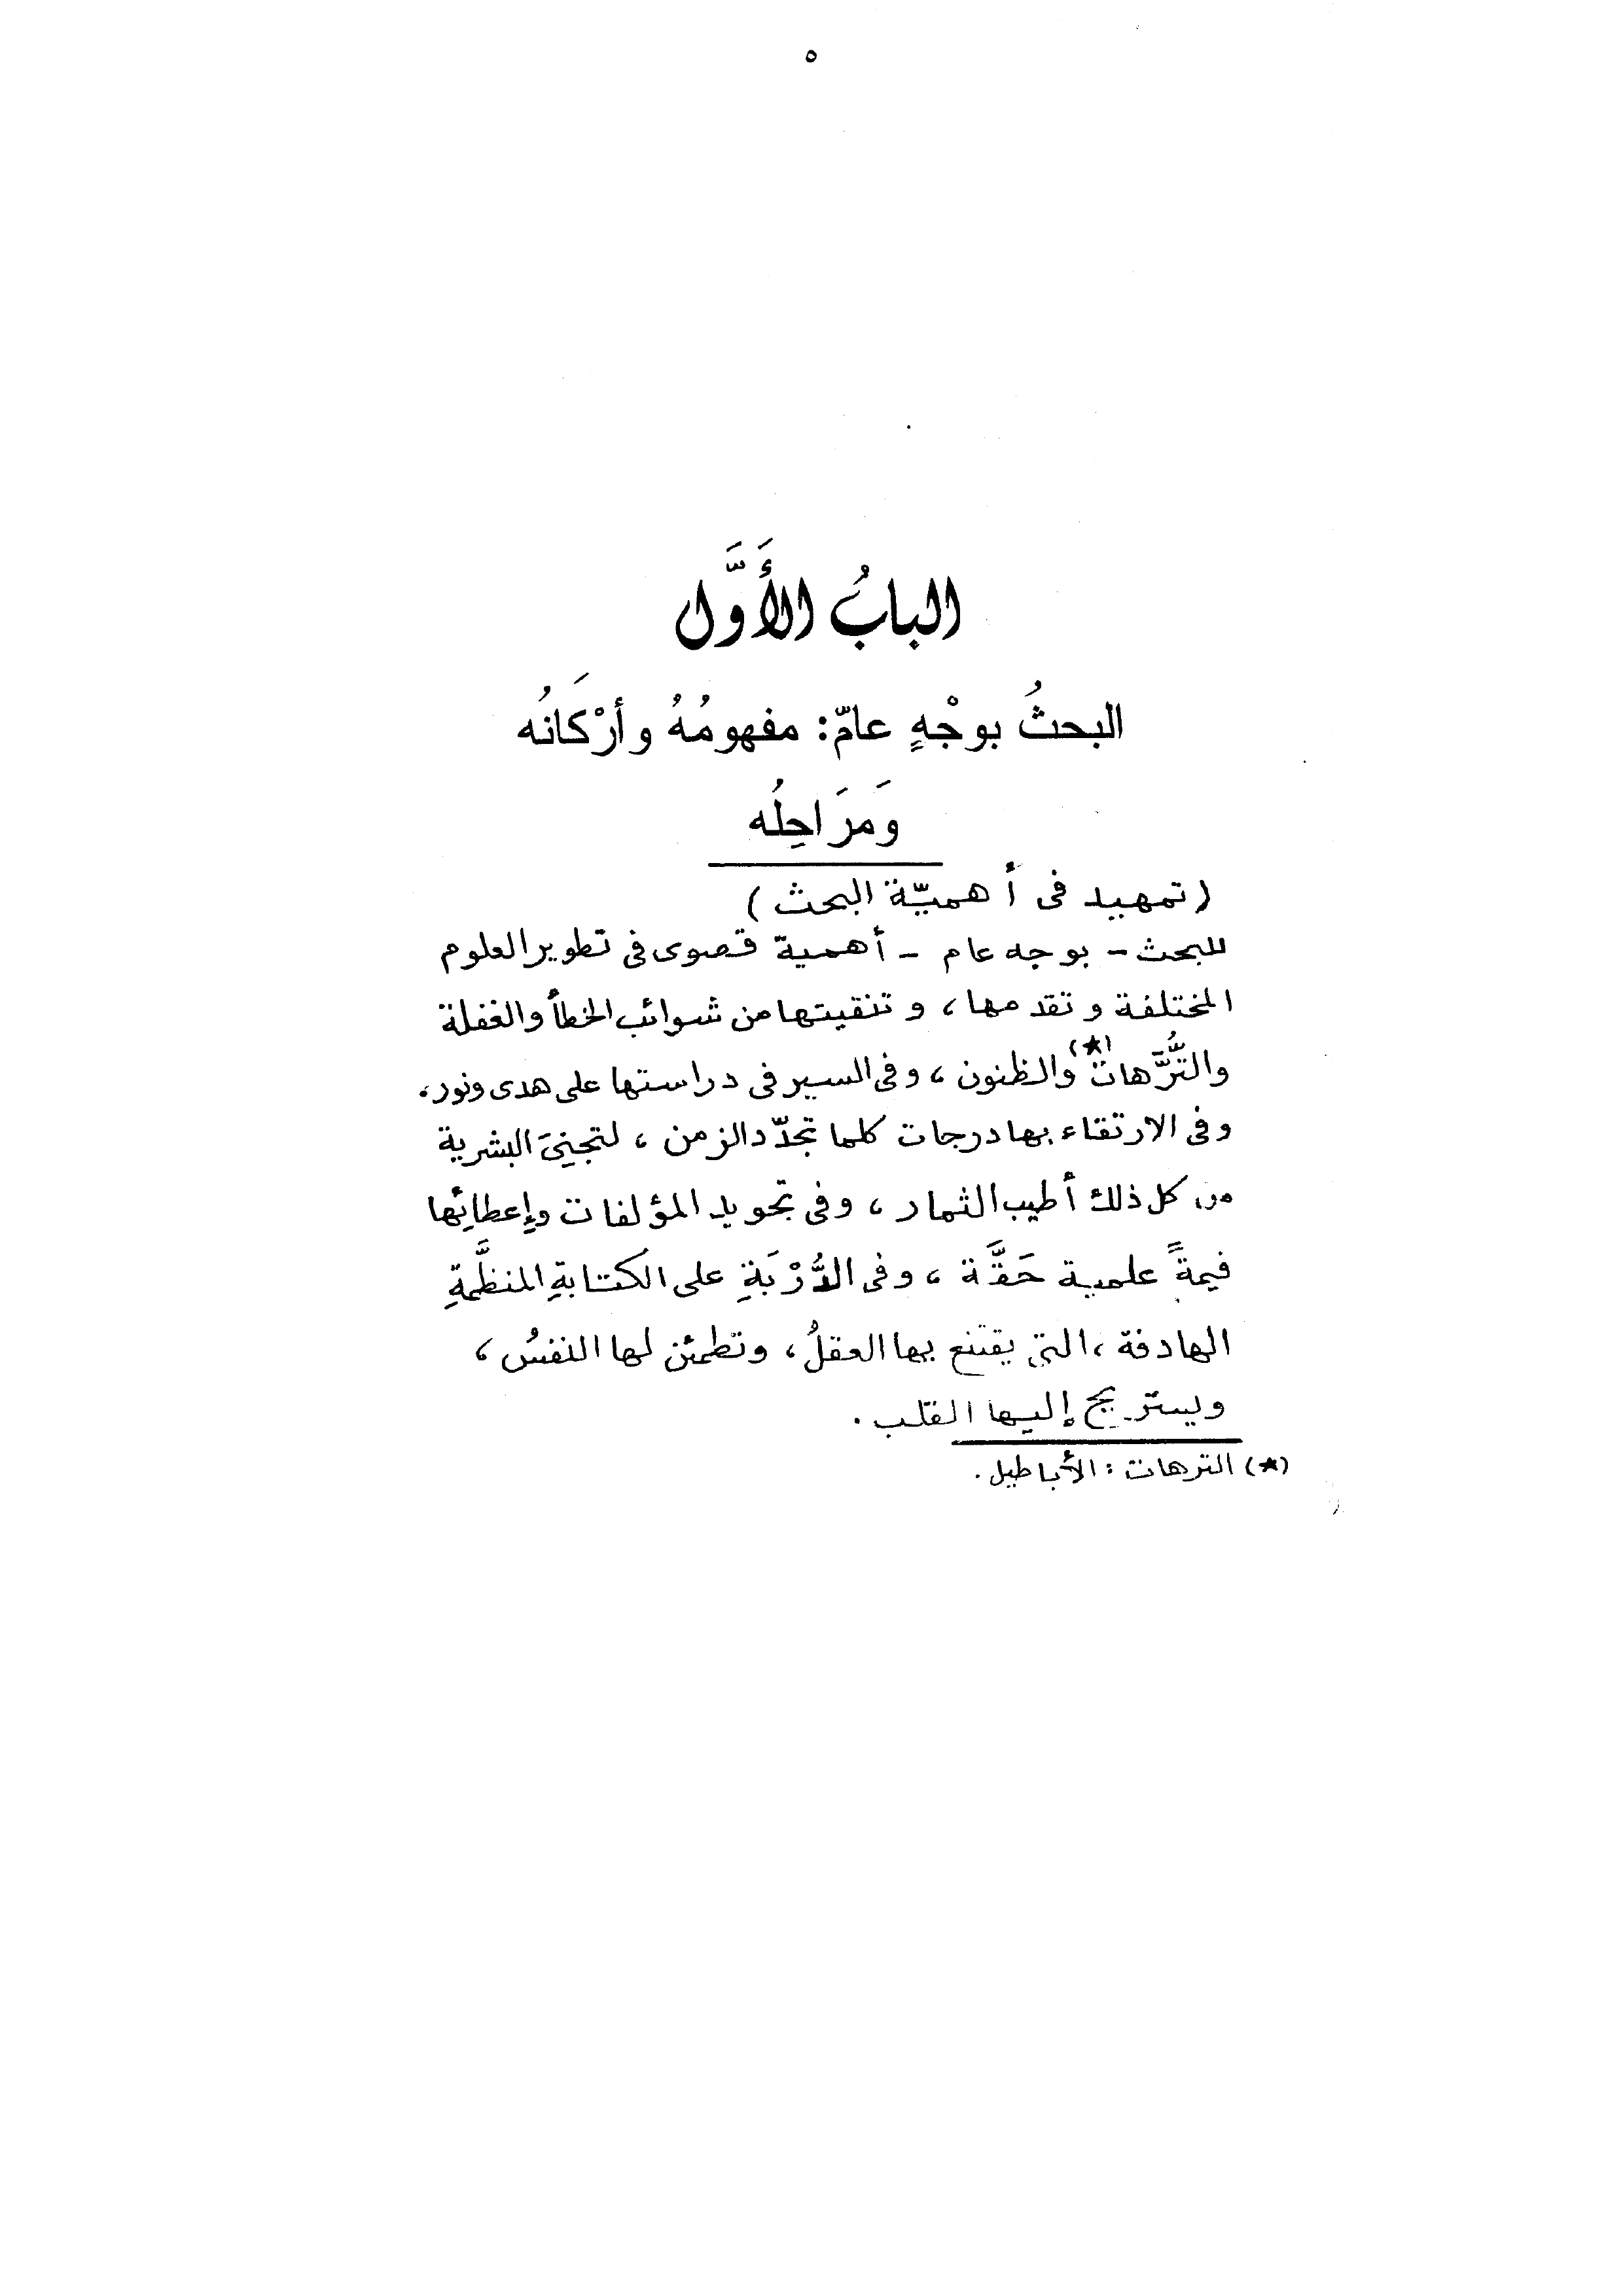 ٥
البابُ الأَوَّل
البحثُ بوجْهٍ عامّ: مفهومُهُ وأرْكَانُه
وَمَرَاحِلُه
(تمهيد فى أهميّة البحث)
للبحث - بوجه عام - أهمية قصوى فى تطوير العلوم
المختلفة وتقدمها، وتنقيتها من شوائب الخطأ والغفلة
والتُّرَّهات(★) والظنون، وفى السير فى دراستها على هدى ونور،
وفى الارتقاء بها درجات كلما تجدّد الزمن، لتجنىَ البشرية
من كل ذلك أطيب الثمار، وفى تجويد المؤلفات وإعطائِها
قيمةً علمية حَقَّة، وفى الدُّرْبَةِ على الكتابةِ المنظَّمةِ
الهادفة، التى يقتنع بها العقلُ، وتطمئن لها النفسُ،
ويستريح إليها القلب.
(★) الترهات: الأباطيل.